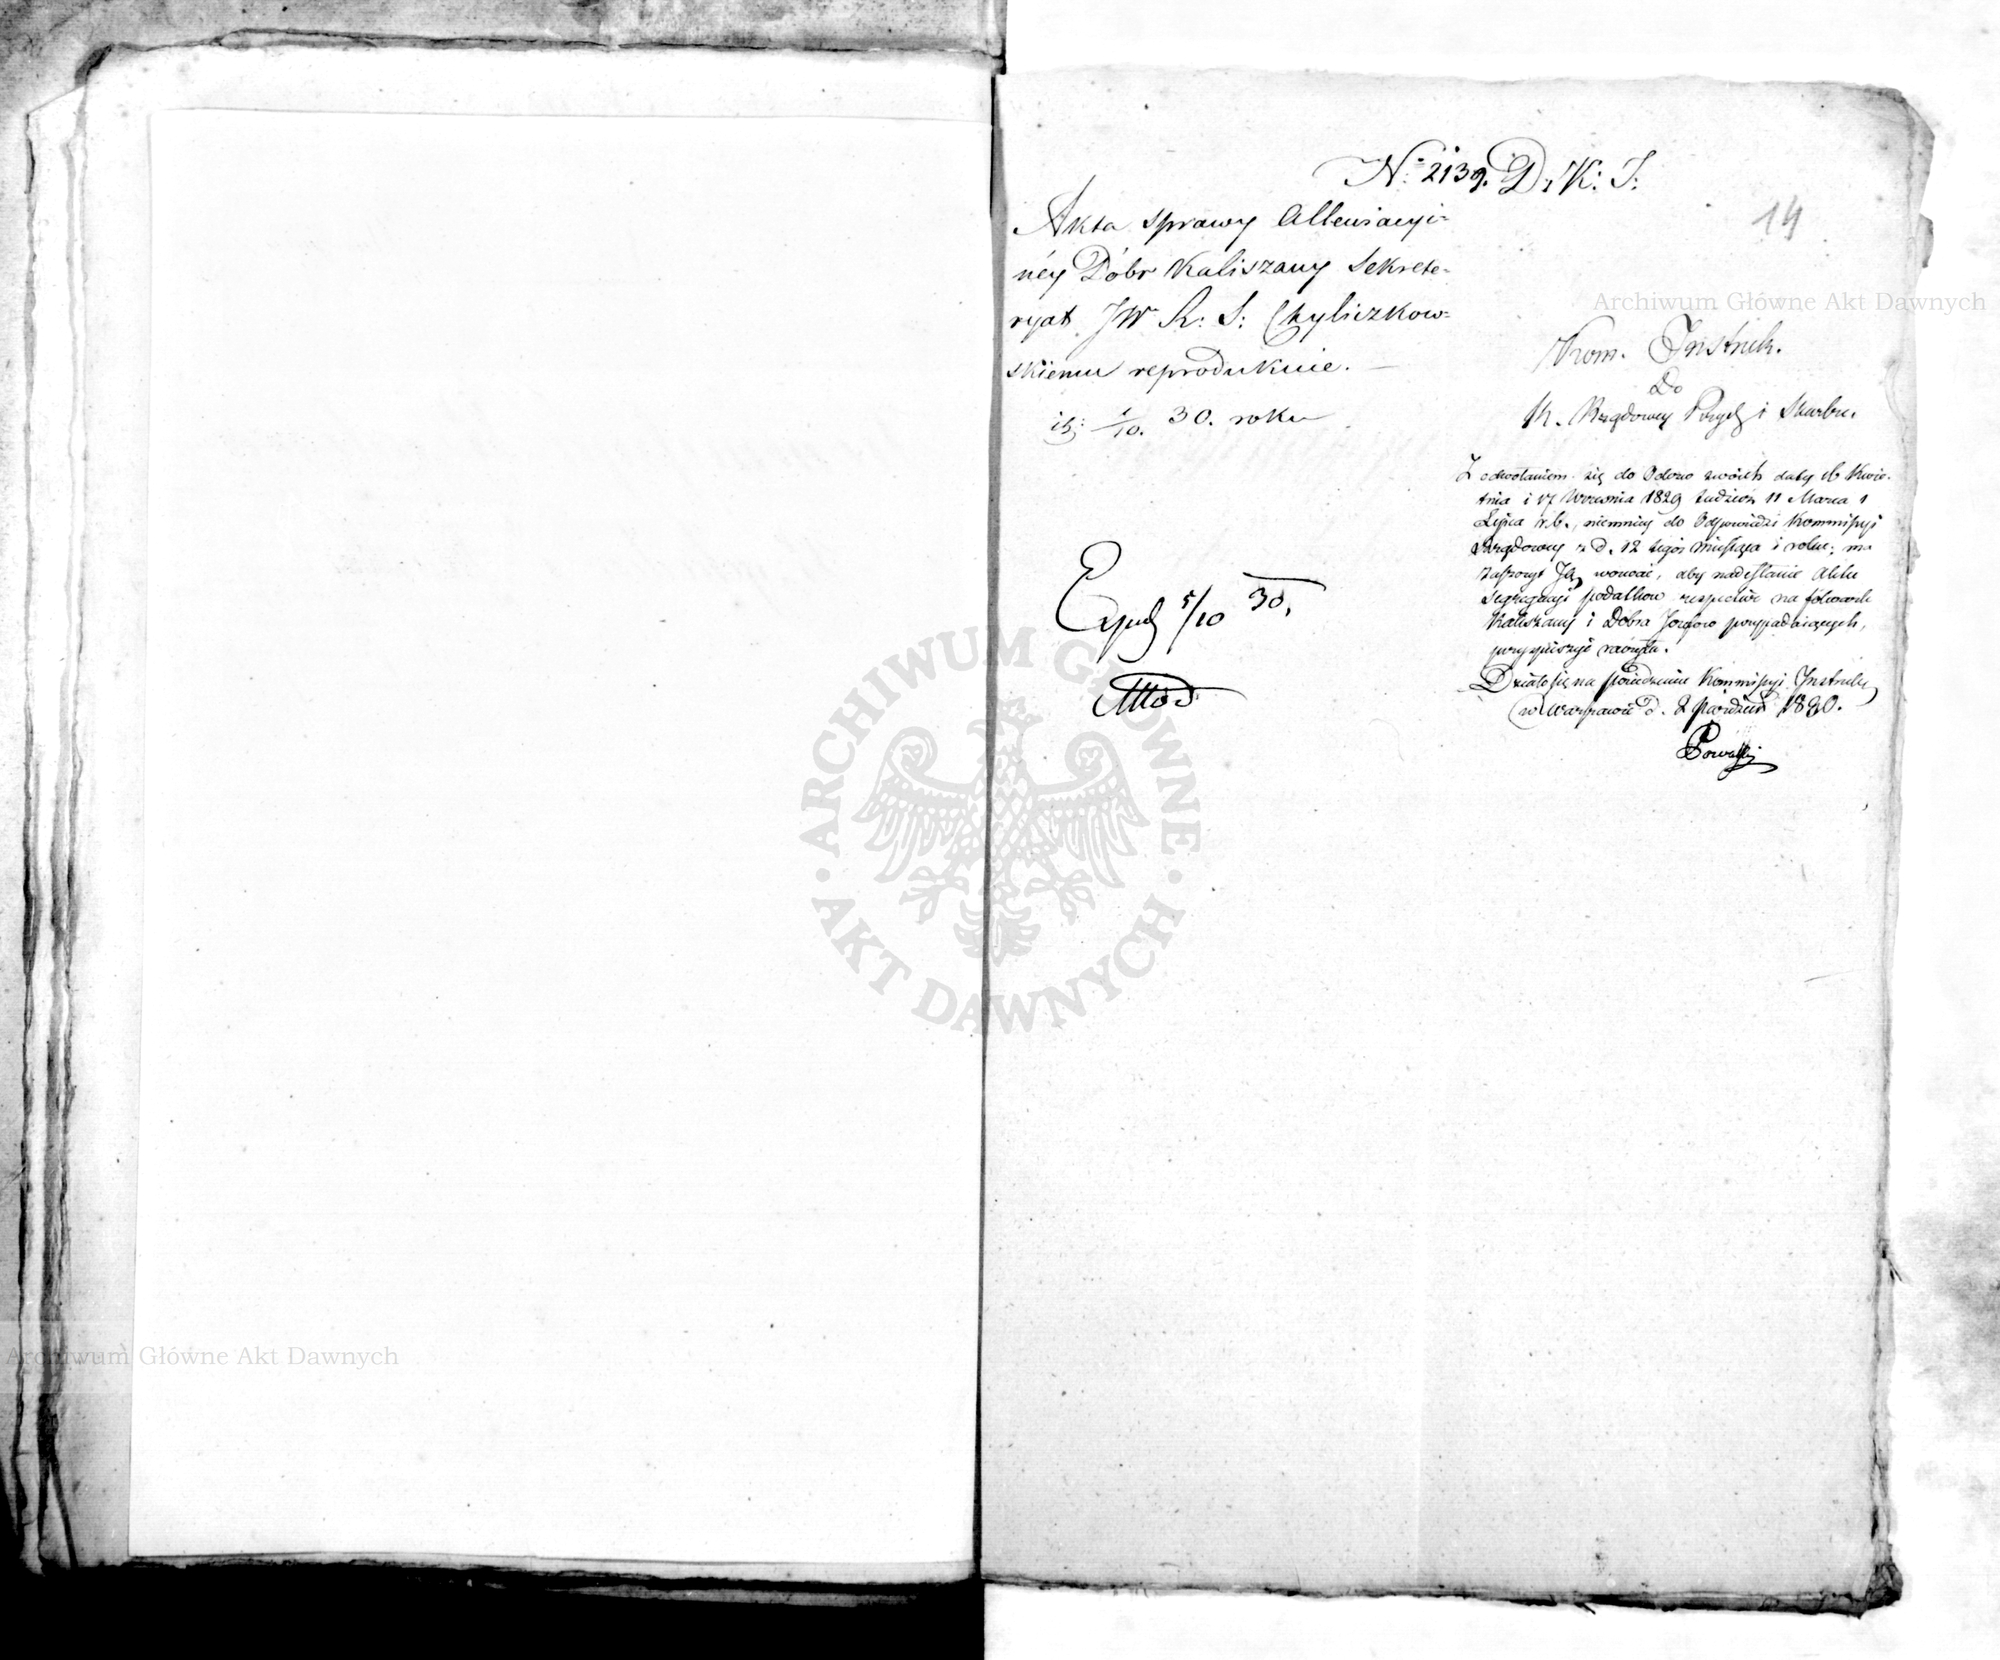 No 2139. D. K. I.
14
Akta sprawy Allewiacyi-
néy Dóbr Kaliszany Sekrete-
ryat JW R: S: Chyliczkow-
skiemu reprodukuie. —
1/10. 30. roku
Exped 5/10 30.
Kom. Instruk.
Do
K. Rządowey Przych i Skarbu.
Z odwołaniem się do Odezw swoich daty 16 Kwie-
tnia i 17 Września 1829 tudzież 11 Marca 1
Lipca r. b., niemniey do Odpowiedzi Kommissyi
Rządowey z d. 12 tegoż miesiąca i roku, ma
zaszczyt Ją wezwać, aby nadesłanie Aktu
segregacyi podatków respective na folwark
Kaliszany i Dobra przypadaiących,
przyspieszyć raczyła.
Działo się na posiedzeniu Kommissyi Instruk
w Warszawie d. 2 Pazdzier 1830.
ARCHIWUM GŁÓWNE AKT DAWNYCH
Archiwum Główne Akt Dawnych
Archiwum Główne Akt Dawnych